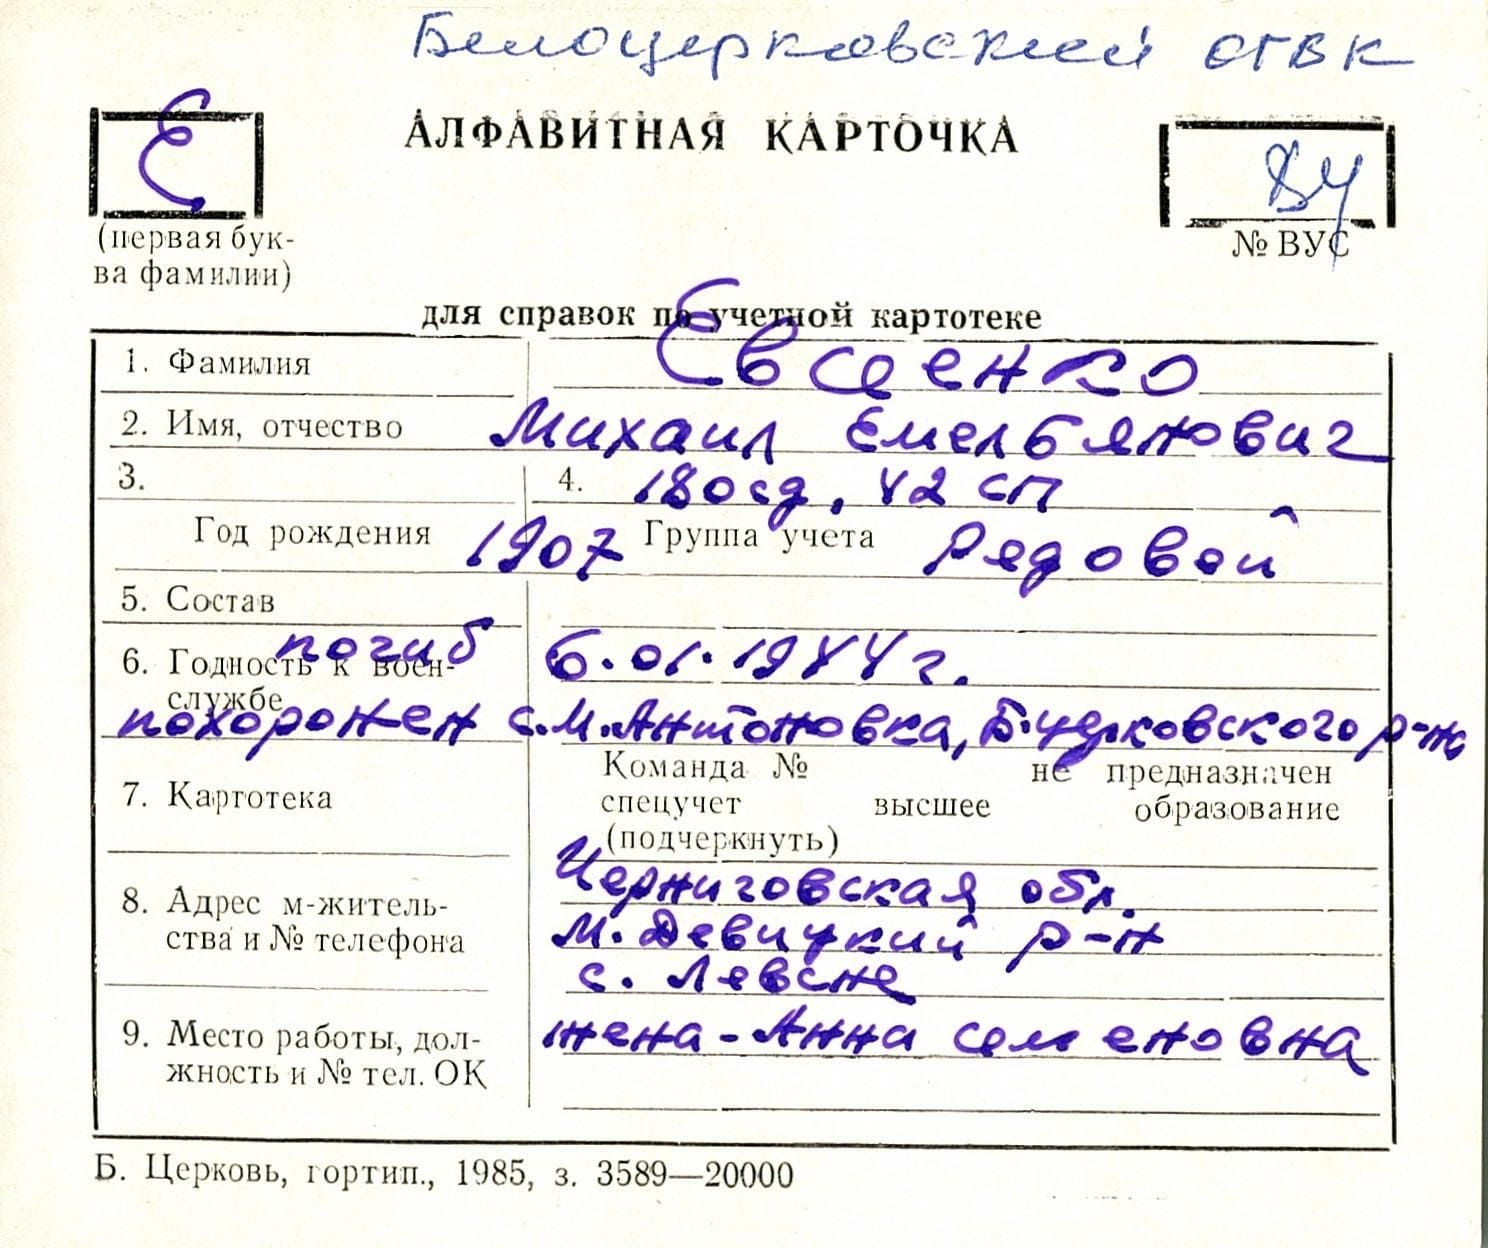 Белоцерковский ОГВК
Е
АЛФАВИТНАЯ КАРТОЧКА
ВУ
(первая бук-
ва фамилии)
№ ВУС
для справок по учетной картотеке
1. Фамилия Евсеенко
2. Имя, отчество Михаил Емельянович
3. 4. 180 сд, 42 сп
Год рождения 1907 Группа учета Рядовой
5. Состав
погиб 6.01.1944 г.
6. Годность к воен-
службе
похоронен с. М. Антоновка, Б. Церковского р-н
7. Картотека
Команда № не предназначен
спецучет высшее образование
(подчеркнуть)
8. Адрес м-житель-
ства и № телефона
Черниговская обл.
М. Девицкий р-н
с. Левски
9. Место работы, дол-
жность и № тел. ОК
жена - Анна Семеновна
Б. Церковь, гортип., 1985, з. 3589—20000